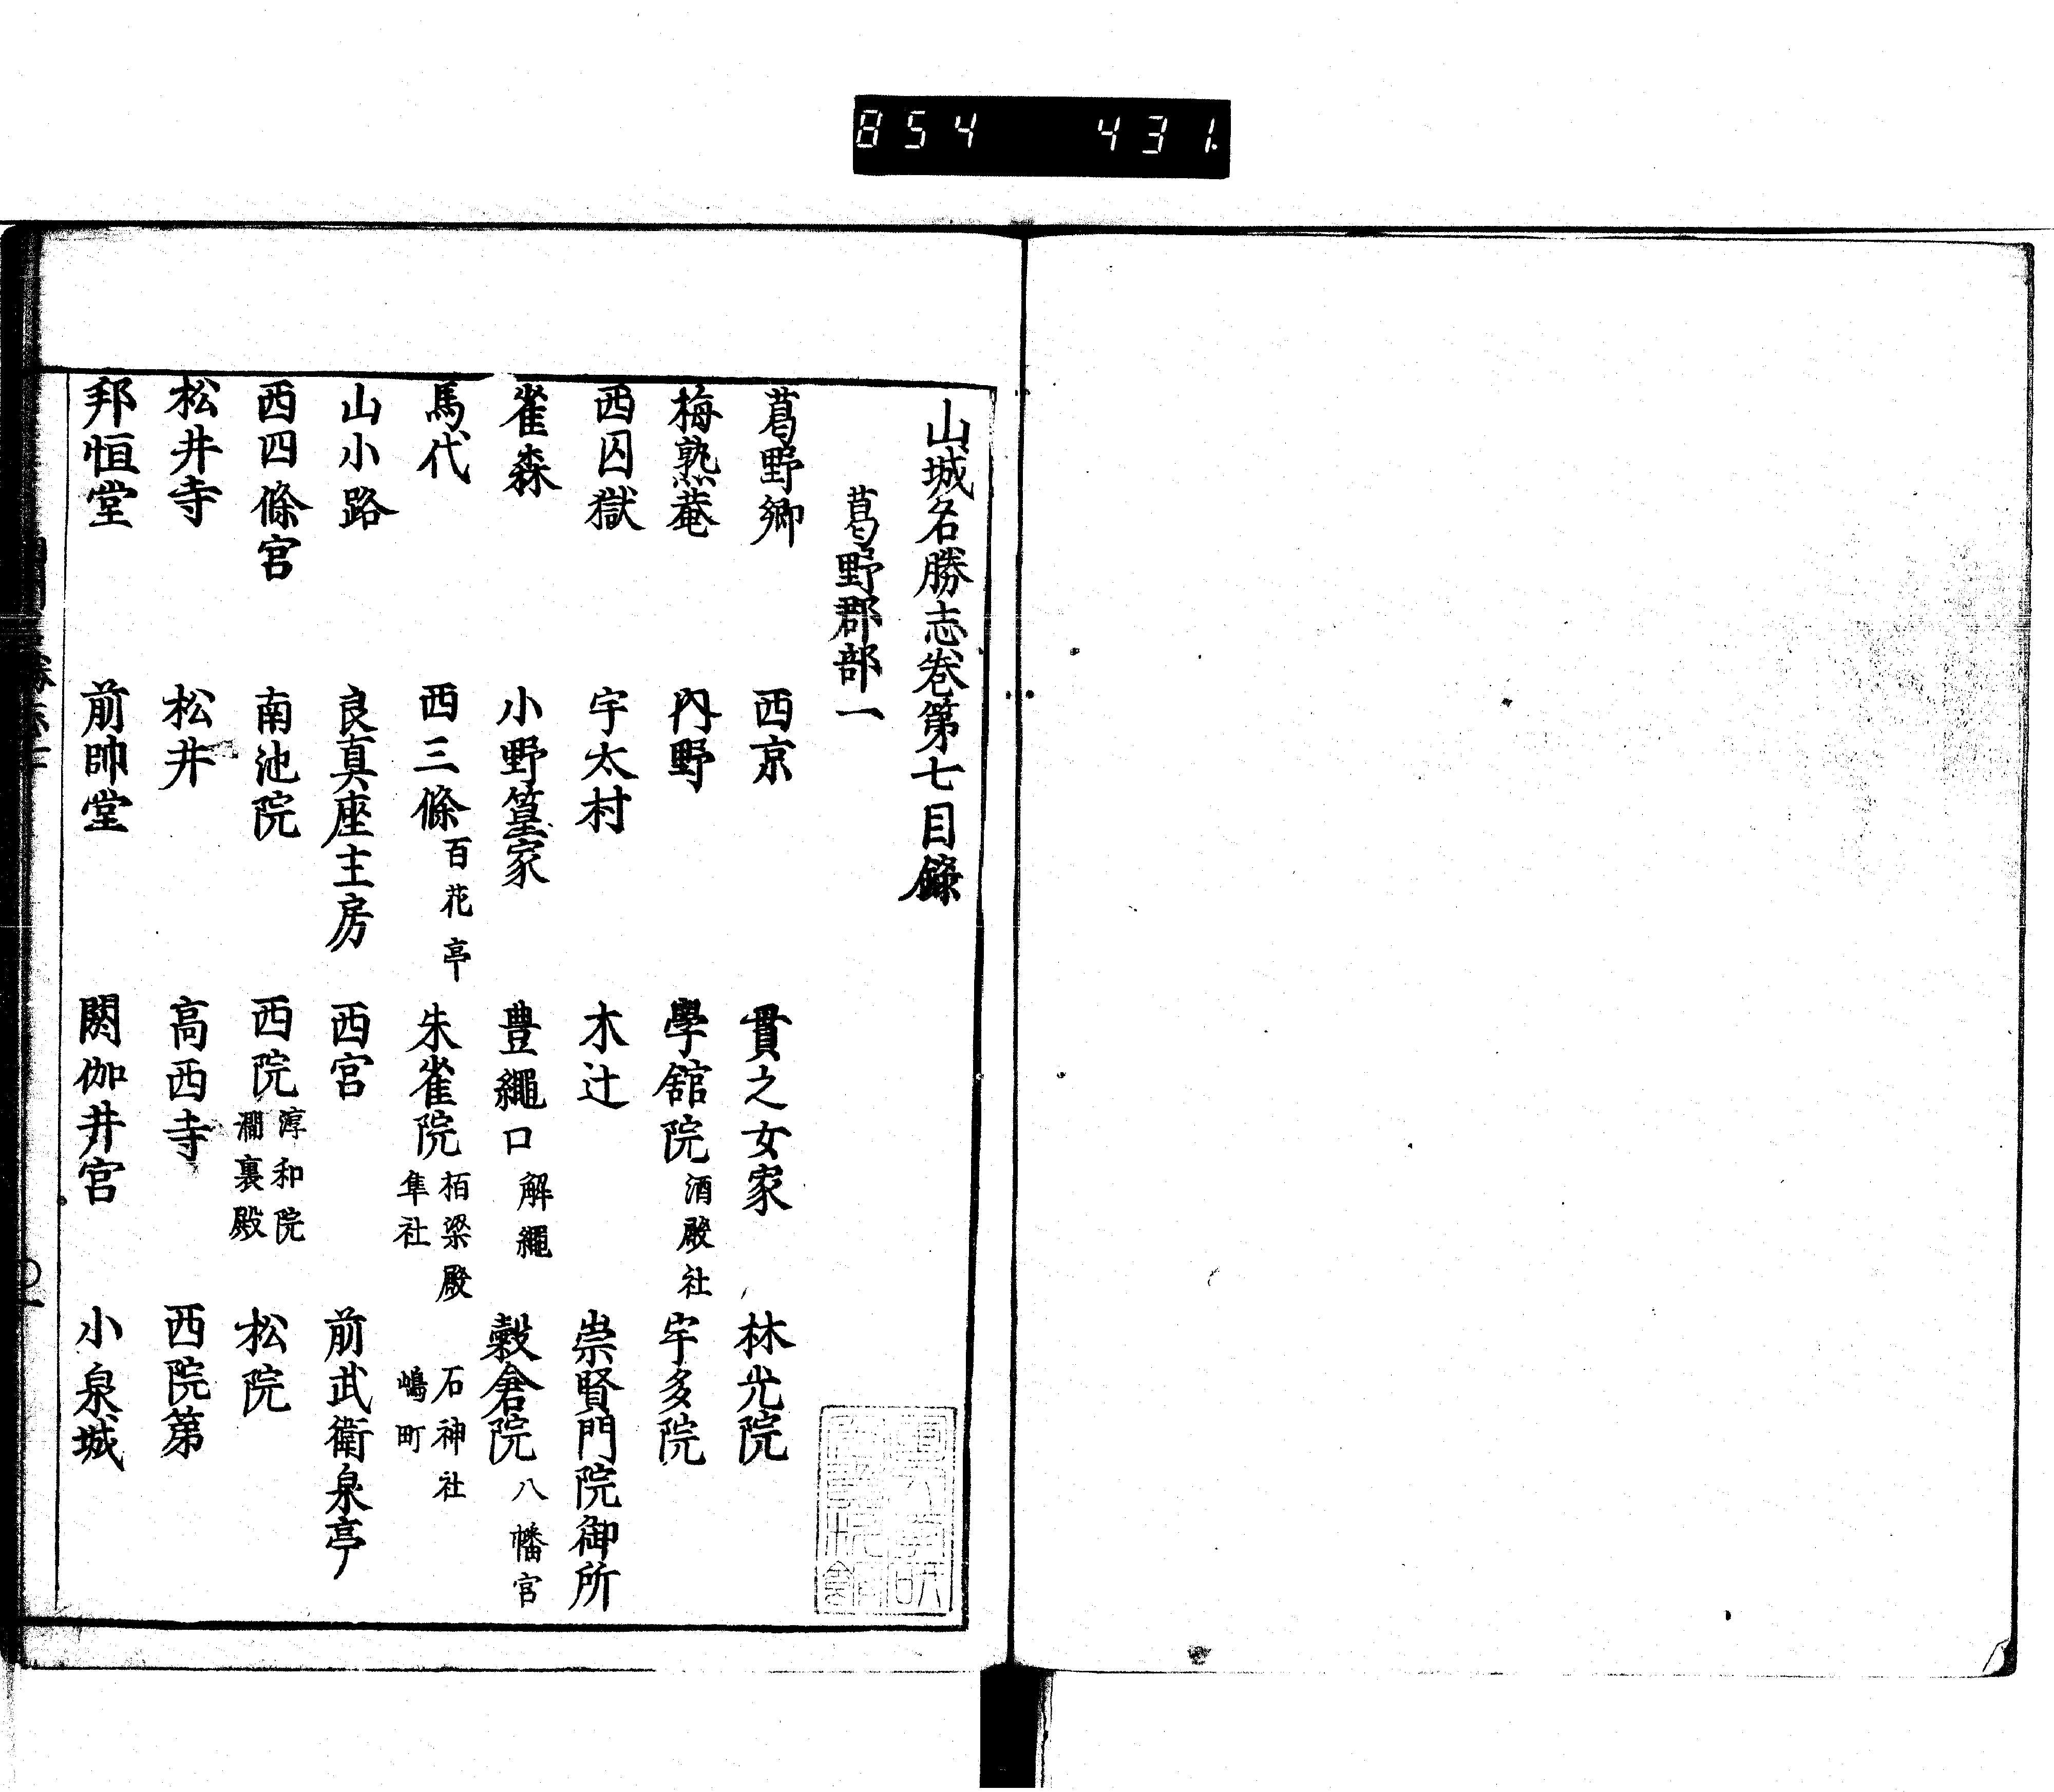 854 431
山城名勝志巻第七目錄
葛野郡部一
葛野郷 西京 貫之女家 林光院
梅熟菴 內野 學舘院 酒殿社 宇多院
西囚獄 宇太村 木辻 崇賢門院御所
雀森 小野篁家 豊繩口 解繩 穀倉院 八幡宮
馬代 西三條 百花亭 朱雀院 栢梁殿 隼社 石神社 嶋町
山小路 良真座主房 西宮 前武衛泉亭
西四條宮 南池院 西院 淳和院 瀾裏殿 松院
松井寺 松井 高西寺 西院第
邦恒堂 前帥堂 閼伽井宮 小泉城